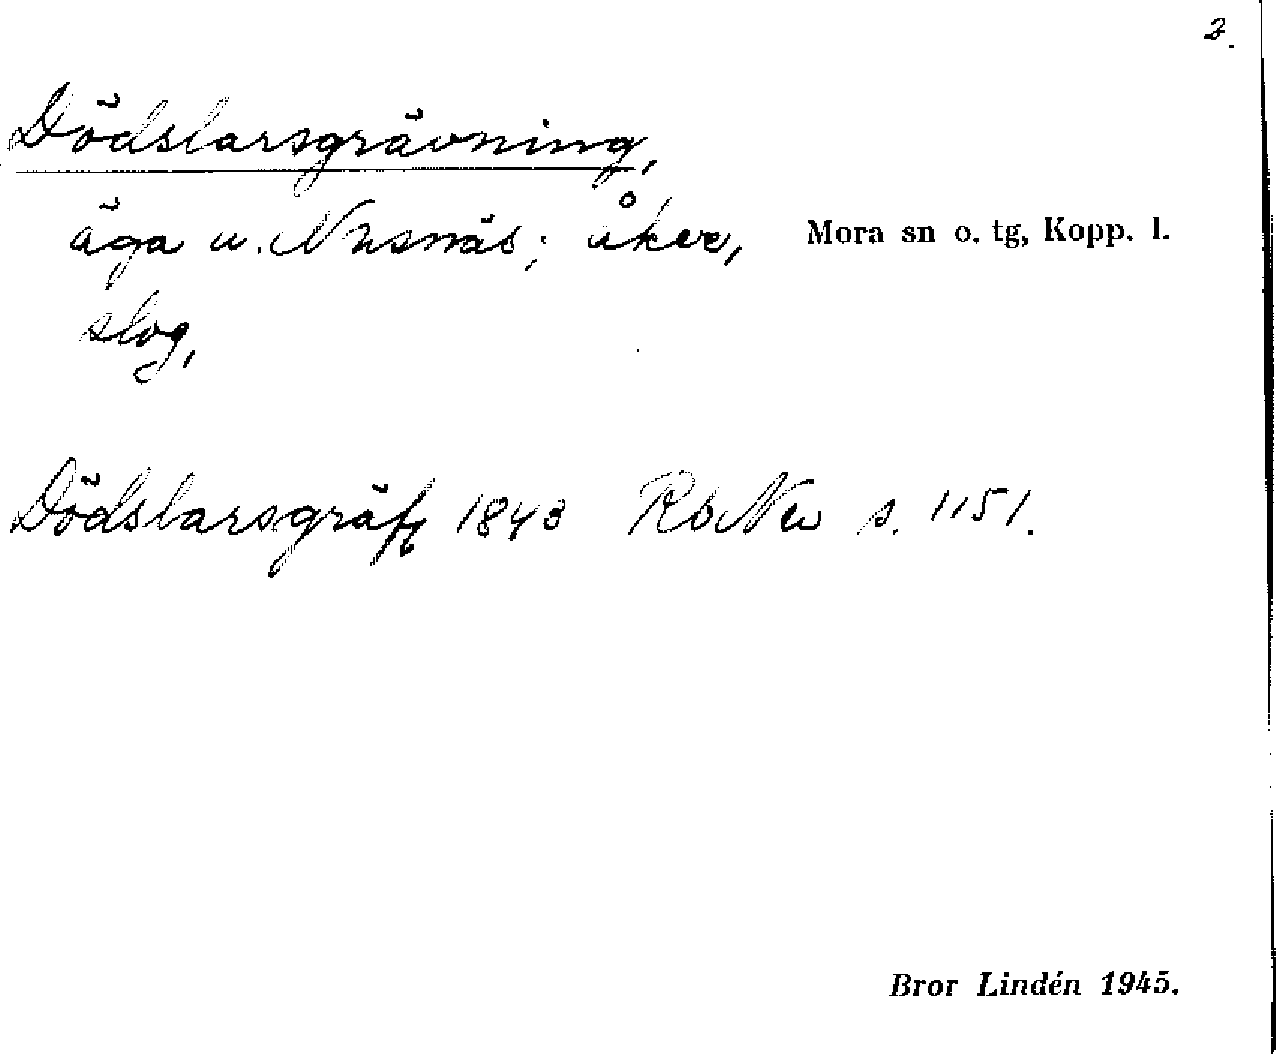 2.
Dödslarsgrävning,
äga u. Nusnäs; åker, Mora sn o. tg, Kopp. l.
slog,
Dödslarsgräfg 1843 RsNu s. 1151.
Bror Lindén 1945.